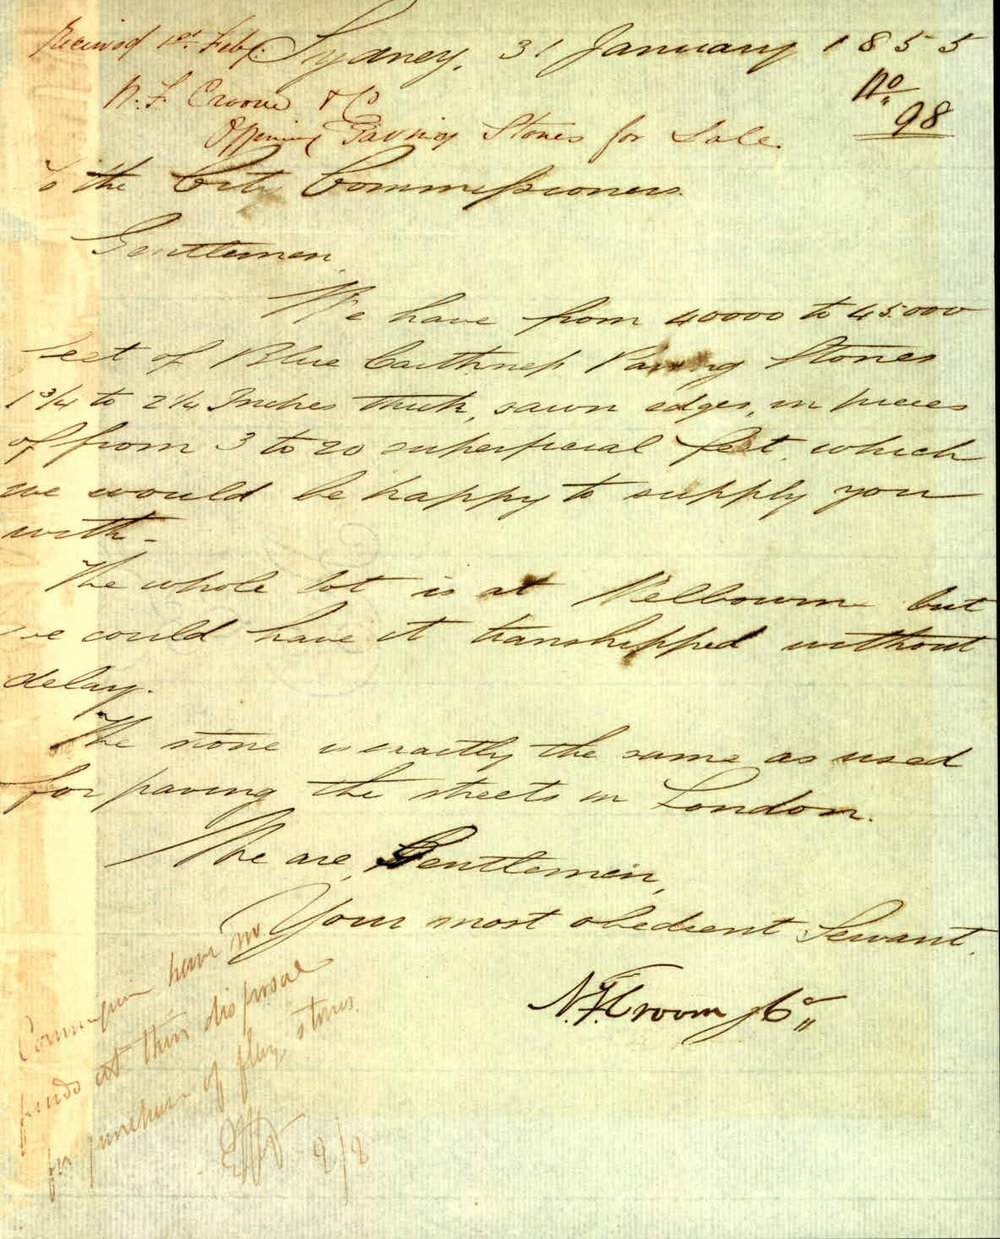 Received 1st Feby. Sydney, 31 January 1855
N. F. Croom & Co
No 98
Paving Stones for Sale.
To the City Commissioners.
Gentlemen,
We have from 40000 to 45.000
feet of Blue Caithness Paving Stones
1 3/4 to 2 1/4 Inches thick, sawn edges, in pieces
of from 3 to 20 superficial feet, which
we would be happy to supply you
with-
The whole lot is at Melbourne but
we could have it transhipped without
delay.
The stone is exactly the same as used
for paving the streets in London.
We are, Gentlemen,
Your most obedient Servant.
N. F. Croom & Co
have no
funds at their disposal
for purchase of flag stones.
2/2